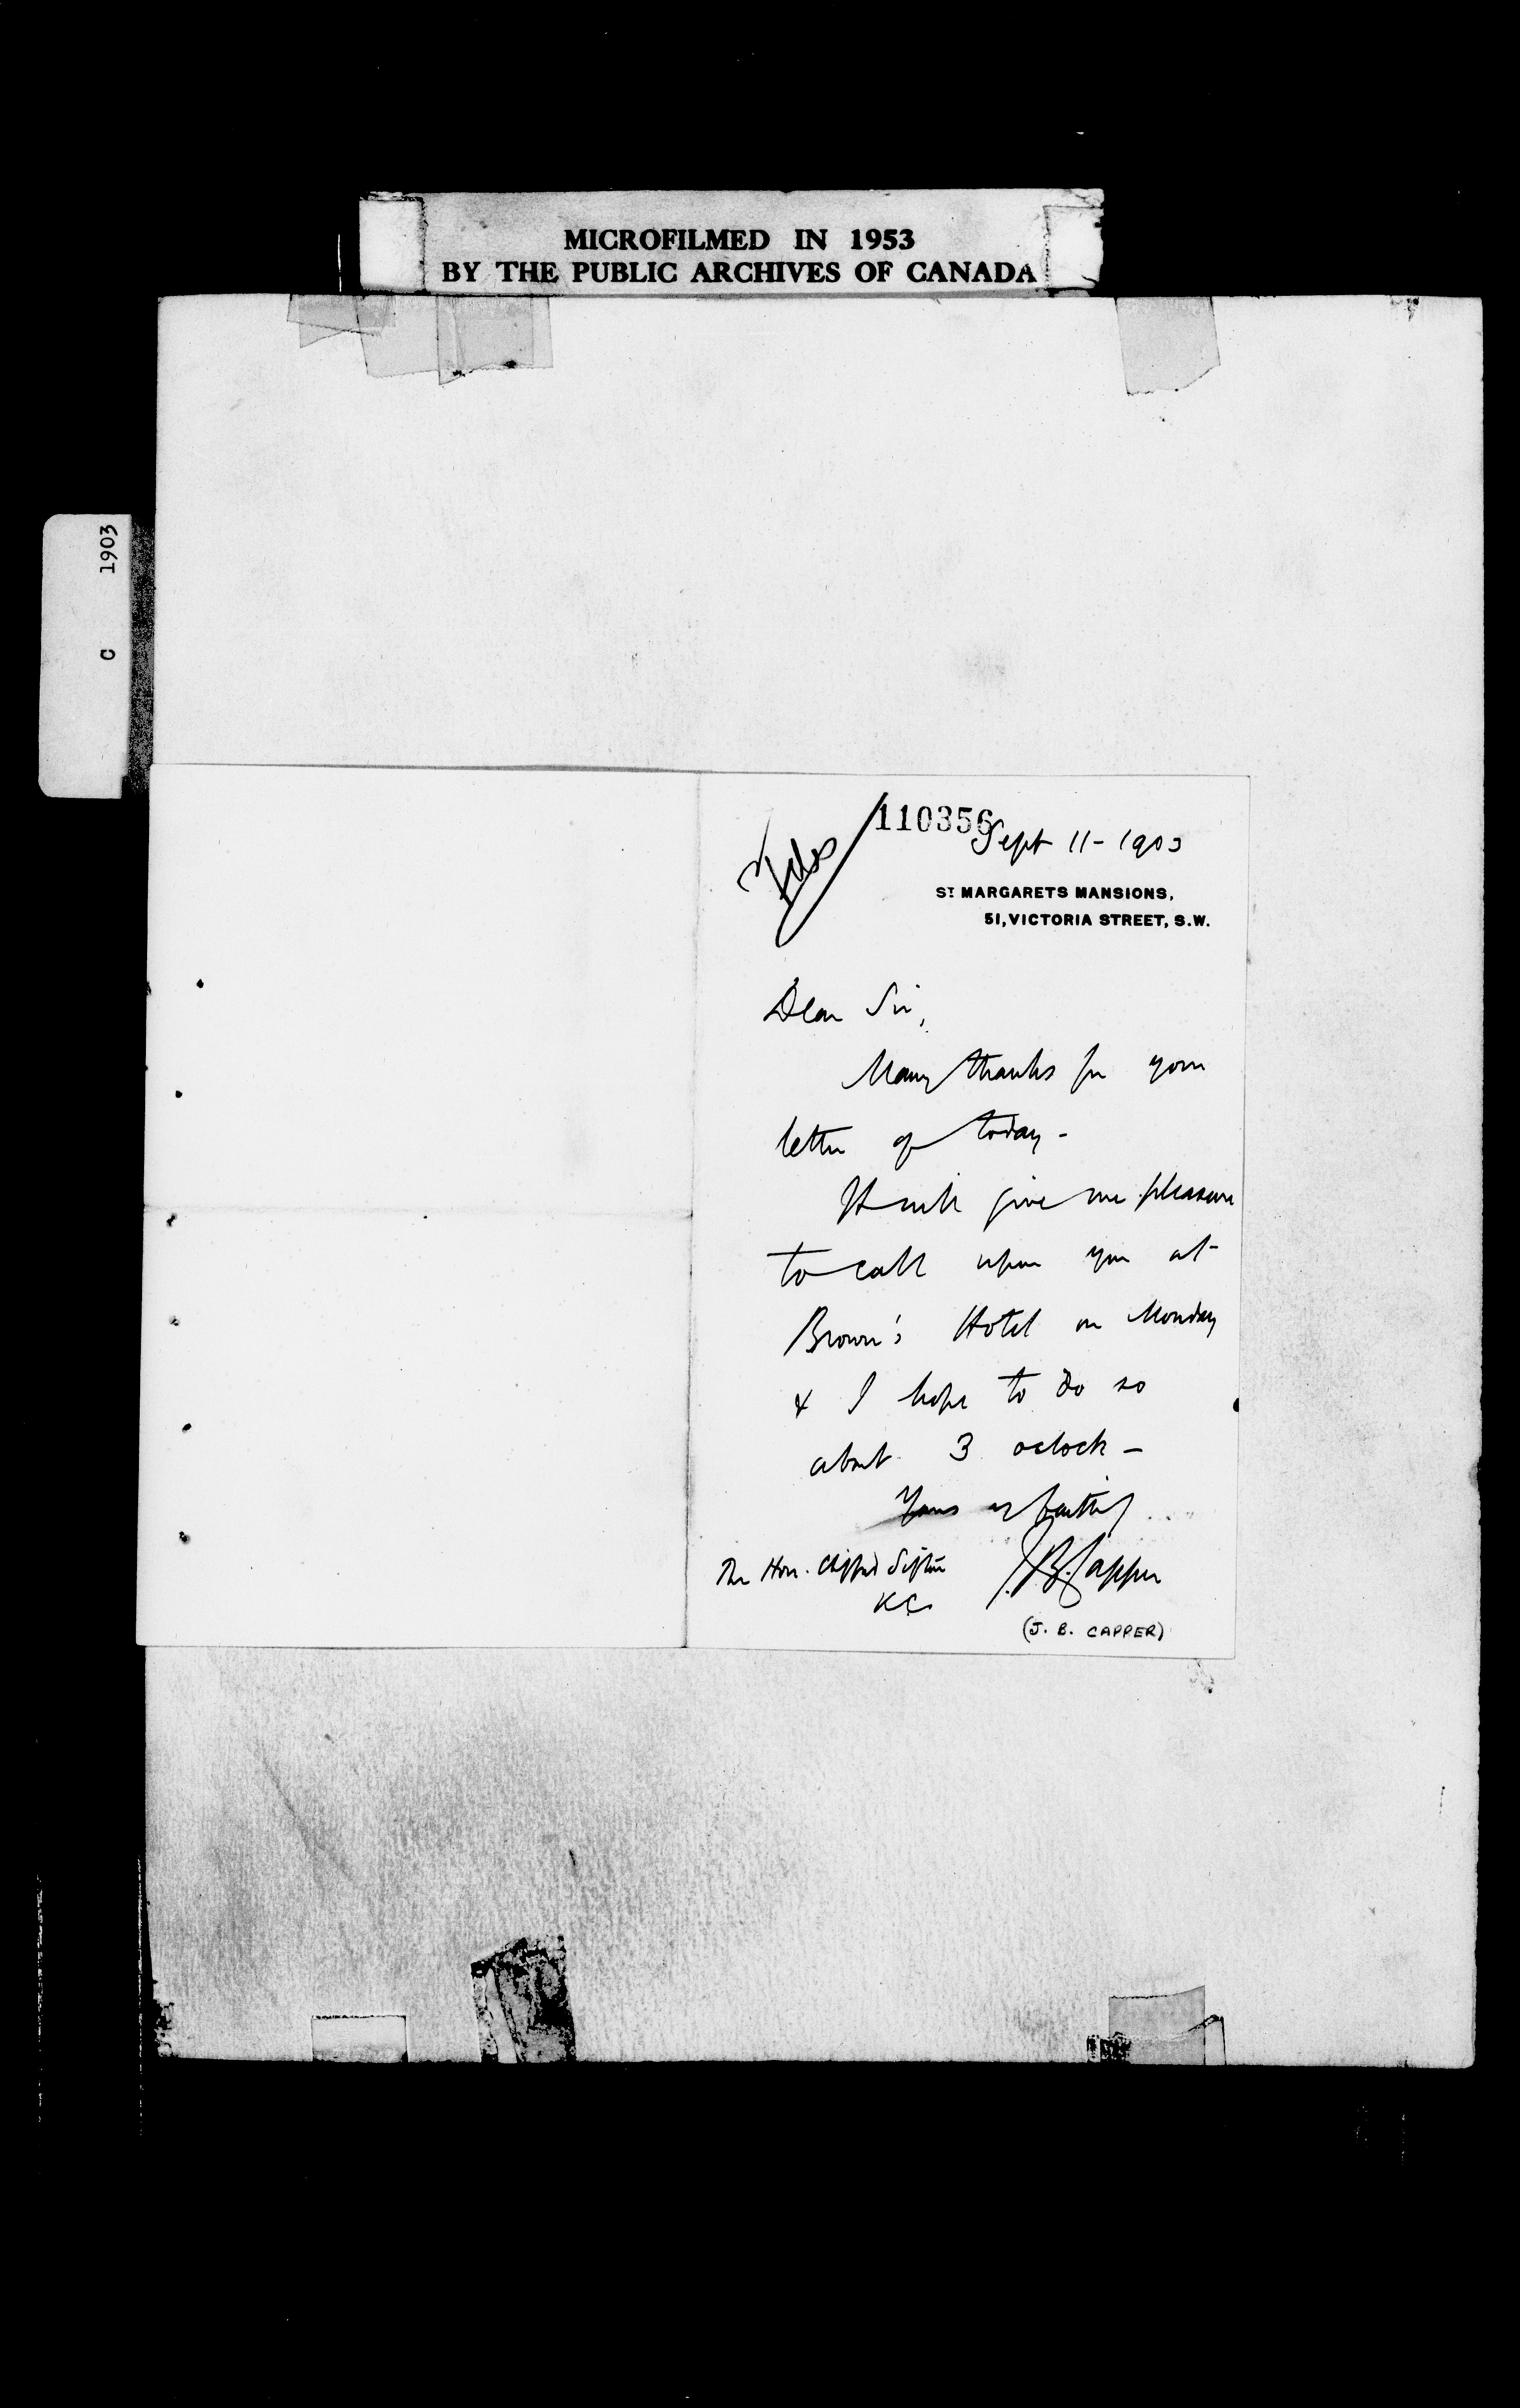 MICROFILMED IN 1953
BY THE PUBLIC ARCHIVES OF CANADA
C 1903
110356
Sept 11 - 1903
ST MARGARETS MANSIONS,
51, VICTORIA STREET, S.W.
Dear Sir,
Many thanks for your
letter of today -
It will give me pleasure
to call upon you at
Brown's Hotel on Monday
& I hope to do so
about 3 oclock -
Yours faithfy
The Hon. Clifford Sifton
K.C.
J.B. Capper
(J. B. CAPPER)